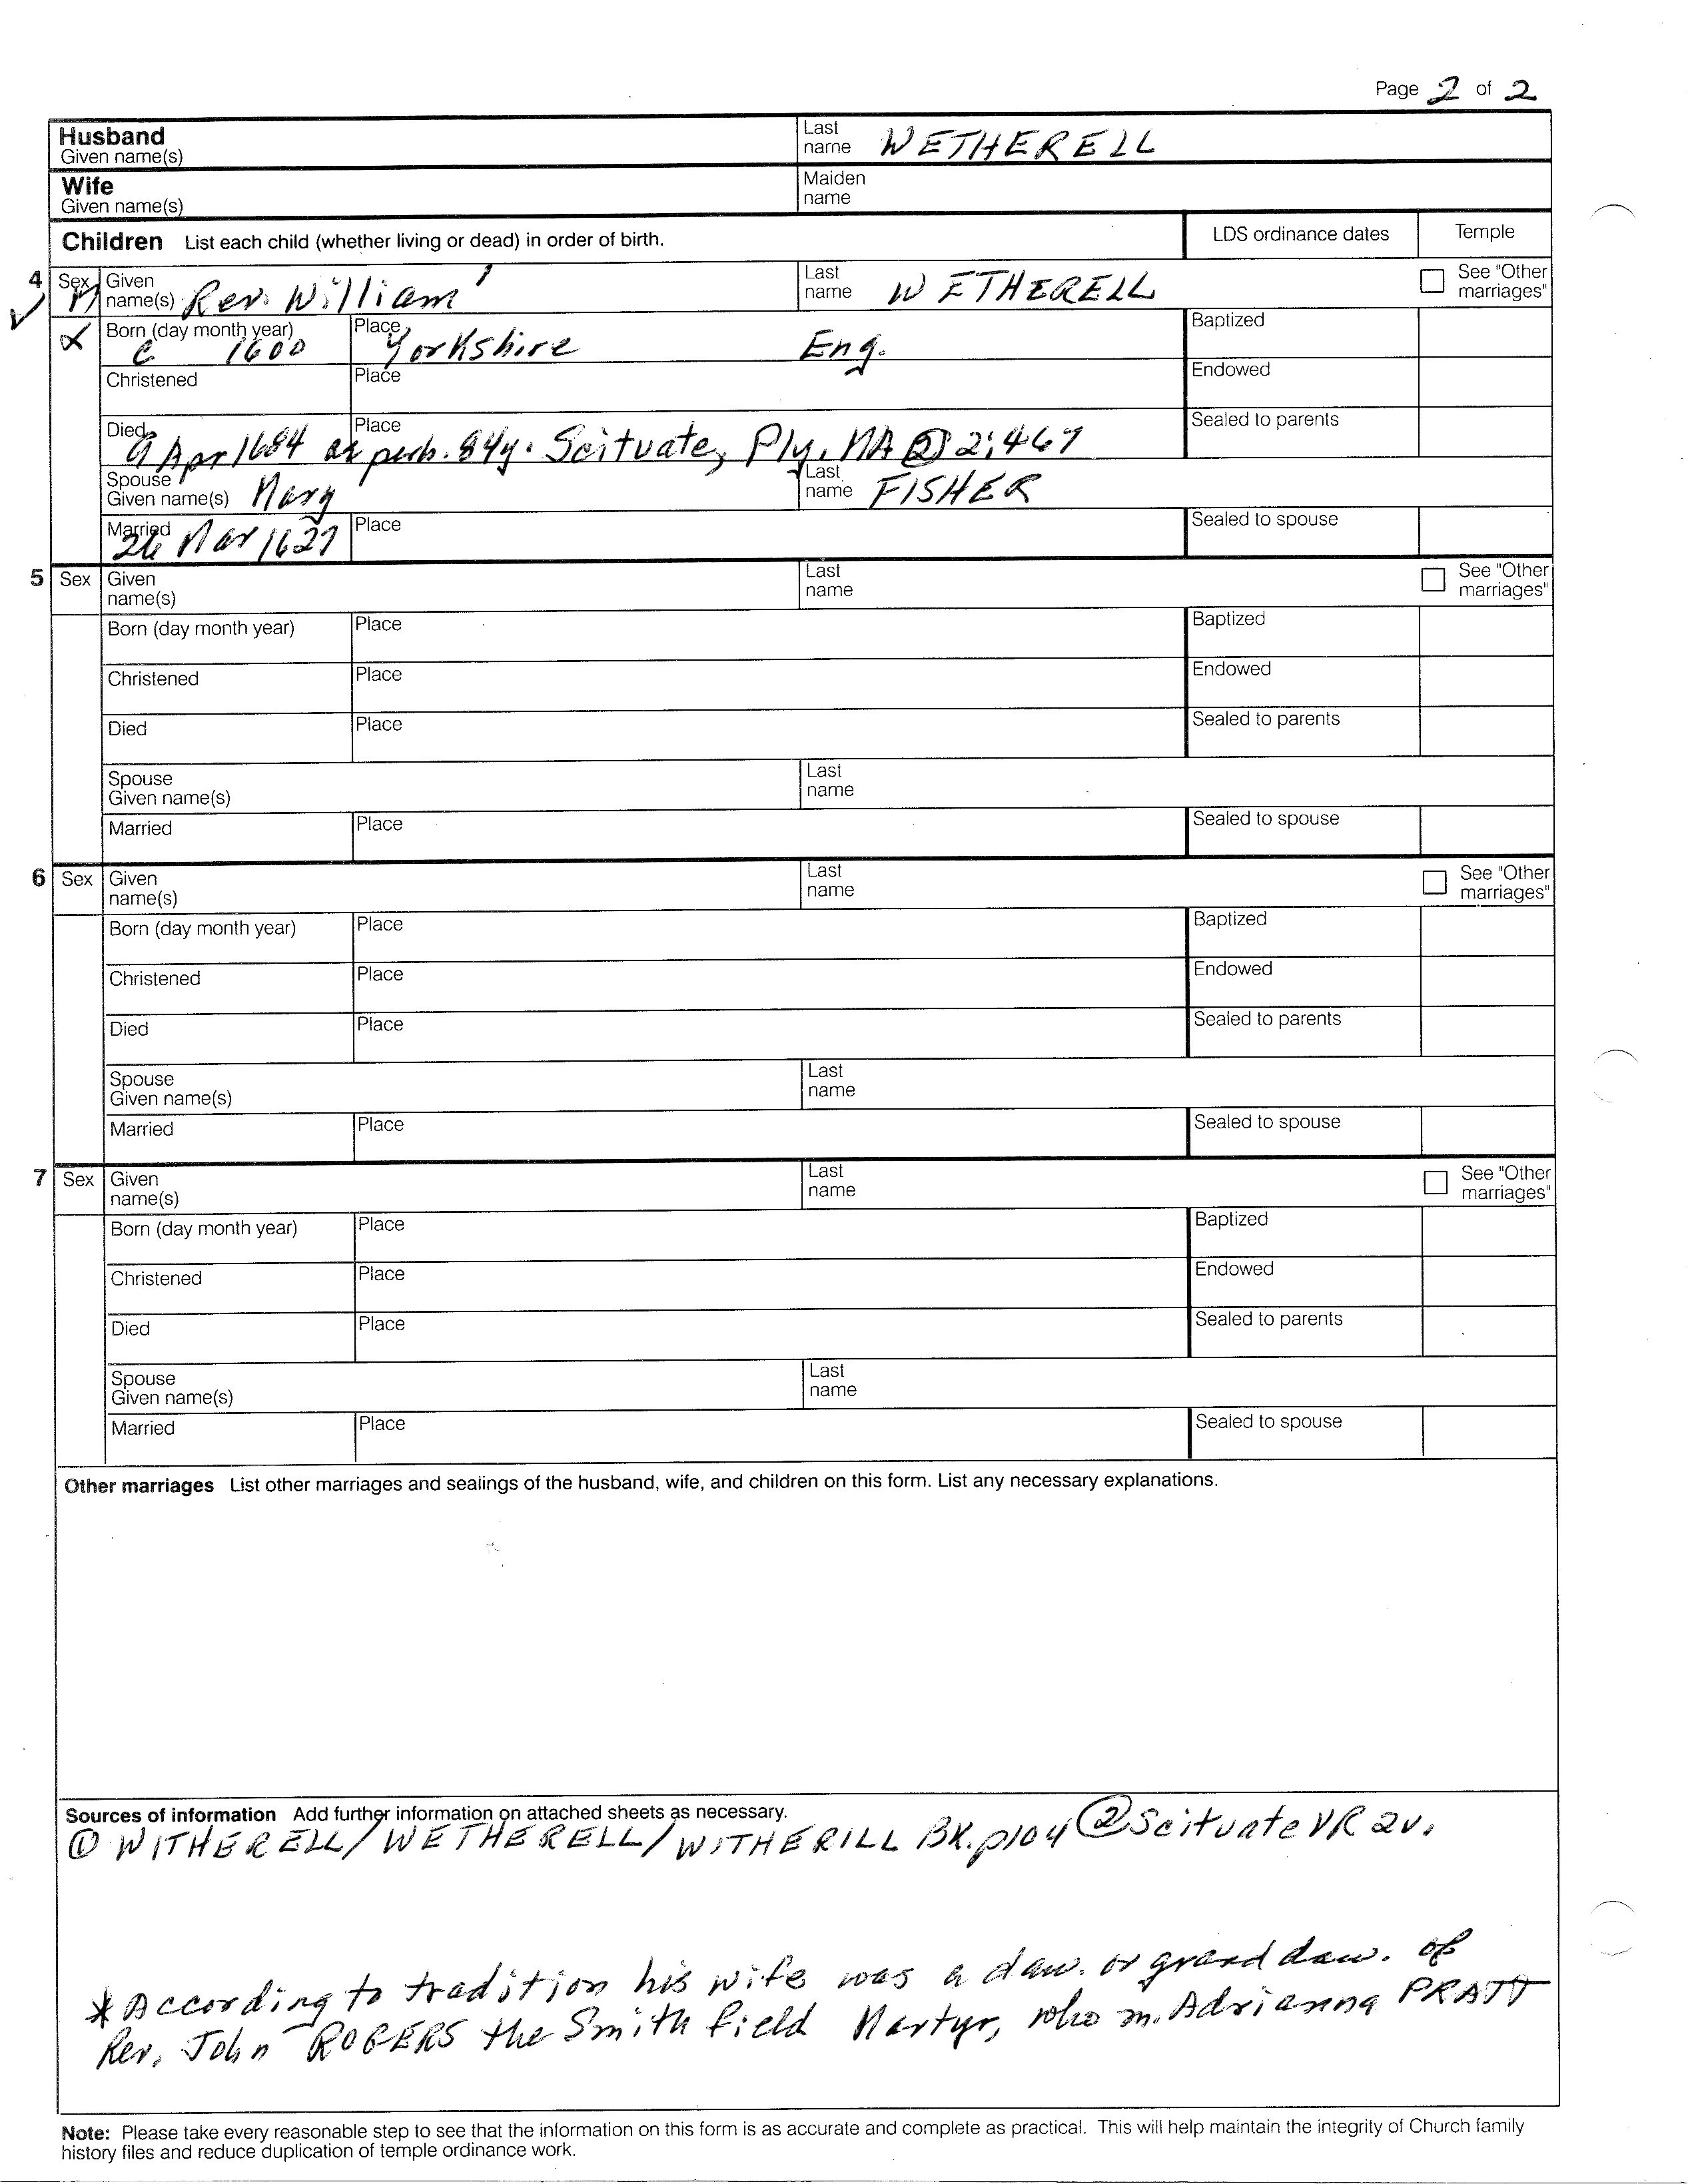 Page 2 of 2
Husband Given name(s) Last name WETHERELL
Wife Given name(s) Maiden name
Children List each child (whether living or dead) in order of birth. LDS ordinance dates Temple
4 Sex M Given name(s) Rev. William ' Last name WETHERELL See "Other marriages"
Born (day month year) c 1600 Place Yorkshire Eng. Baptized
Christened Place Endowed
Died 9 Apr 1684 ae perh. 84y. Place Scituate, Ply, MA ② 2:467 Sealed to parents
Spouse Given name(s) Mary Last name FISHER
Married 26 Mar 1627 Place Sealed to spouse
5 Sex Given name(s) Last name See "Other marriages"
Born (day month year) Place Baptized
Christened Place Endowed
Died Place Sealed to parents
Spouse Given name(s) Last name
Married Place Sealed to spouse
6 Sex Given name(s) Last name See "Other marriages"
Born (day month year) Place Baptized
Christened Place Endowed
Died Place Sealed to parents
Spouse Given name(s) Last name
Married Place Sealed to spouse
7 Sex Given name(s) Last name See "Other marriages"
Born (day month year) Place Baptized
Christened Place Endowed
Died Place Sealed to parents
Spouse Given name(s) Last name
Married Place Sealed to spouse
Other marriages List other marriages and sealings of the husband, wife, and children on this form. List any necessary explanations.
Sources of information Add further information on attached sheets as necessary.
① WITHERELL/WETHERELL/WITHERILL BK. p104 ② Scituate VR 2v.
* According to tradition his wife was a dau. or grand dau. of
Rev. John ROGERS the Smithfield Martyr, who m. Adrianna PRATT
Note: Please take every reasonable step to see that the information on this form is as accurate and complete as practical. This will help maintain the integrity of Church family
history files and reduce duplication of temple ordinance work.